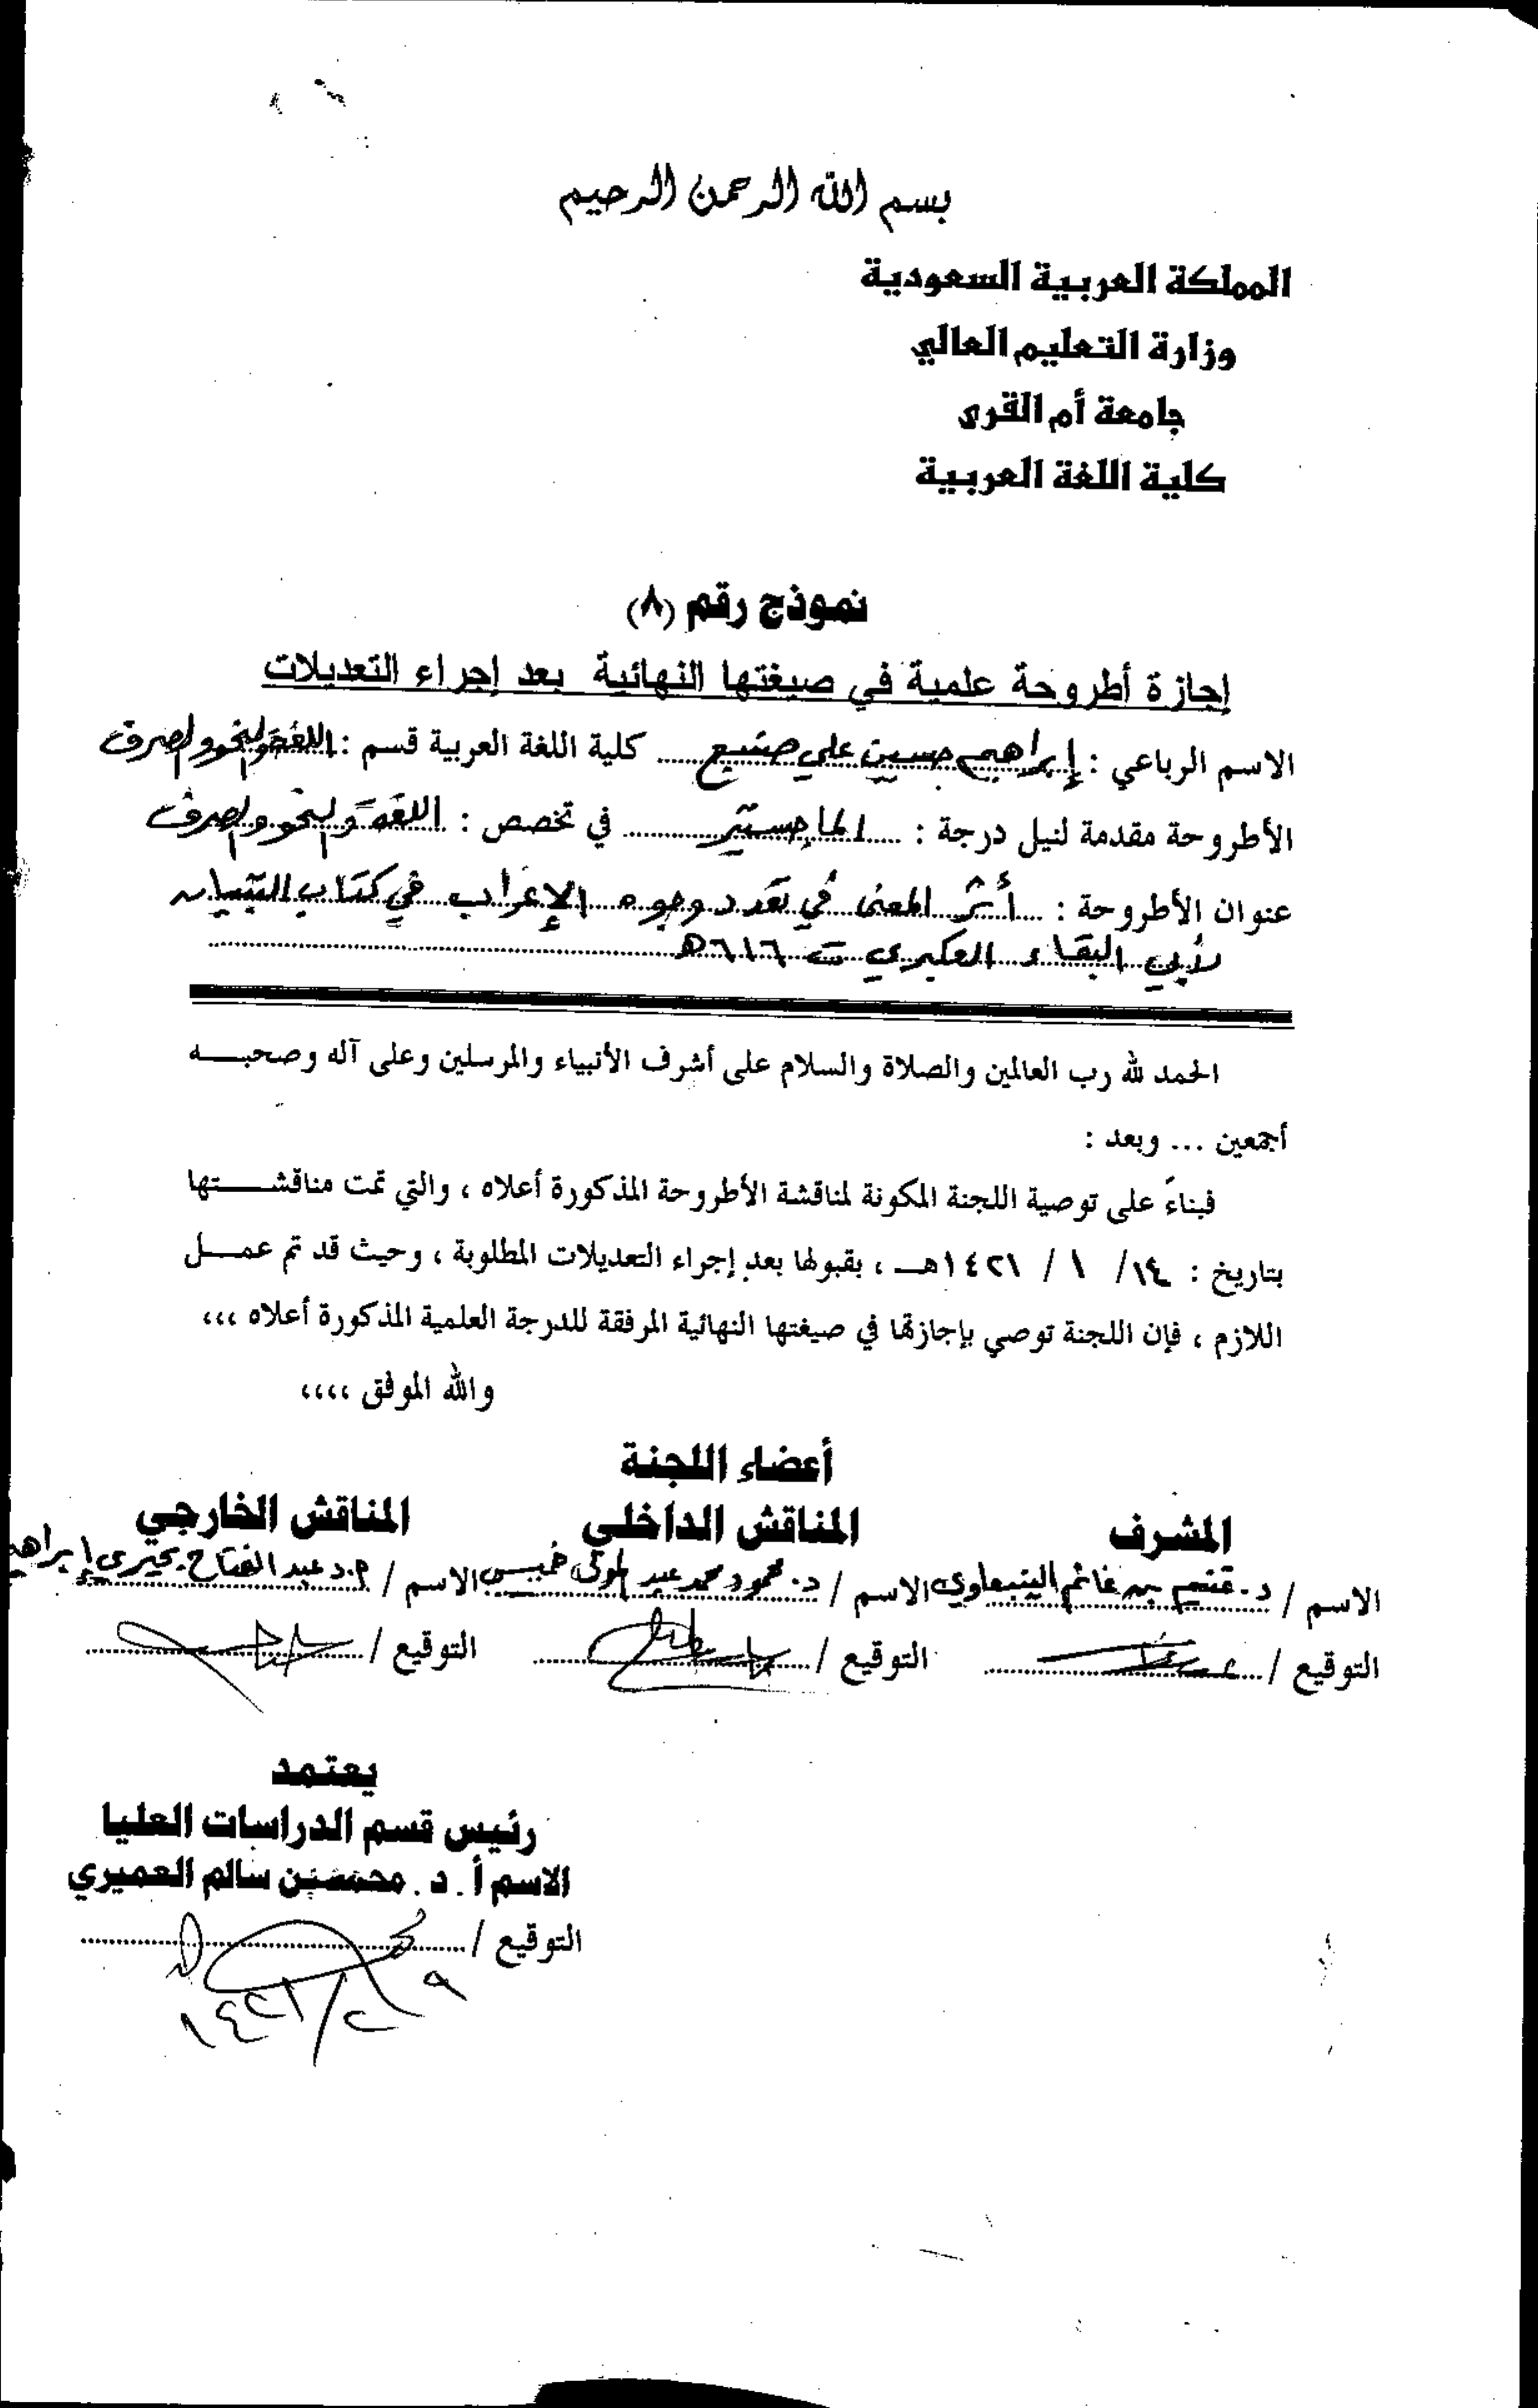 بسم الله الرحمن الرحيم
المملكة العربية السعودية
وزارة التعليم العالي
جامعة أم القرى
كلية اللغة العربية
نموذج رقم (٨)
إجازة أطروحة علمية في صيغتها النهائية بعد إجراء التعديلات
الاسم الرباعي : إبراهيم حسين علي صنبع كلية اللغة العربية قسم : اللغة والنحو والصرف
الأطروحة مقدمة لنيل درجة : الماجستير في تخصص : اللغة والنحو والصرف
عنوان الأطروحة : أثر المعنى في تعدد وجوه الإعراب في كتاب التبيان
لأبي البقاء العكبري ت ٦١٦هـ
الحمد لله رب العالمين والصلاة والسلام على أشرف الأنبياء والمرسلين وعلى آله وصحبـــه
أجمعين ... وبعد :
فبناءً على توصية اللجنة المكونة لمناقشة الأطروحة المذكورة أعلاه ، والتي تمت مناقشـــتها
بتاريخ : ١٤/ ١ / ١٤٢١هـ ، بقبولها بعد إجراء التعديلات المطلوبة ، وحيث قد تم عمـــل
اللازم ، فإن اللجنة توصي بإجازتها في صيغتها النهائية المرفقة للدرجة العلمية المذكورة أعلاه ،،،
والله الموفق ،،،،
أعضاء اللجنة
المشرف المناقش الداخلي المناقش الخارجي
الاسم / د. غنيم بن غانم الينبعاوي الاسم / د. محمود محمد عبد المولى خميس الاسم / د. عبد الفتاح بحيري إبراهيم
التوقيع / التوقيع / التوقيع /
يعتمد
رئيس قسم الدراسات العليا
الاسم أ . د . محسن بن سالم العميري
التوقيع /
٩ / ٢ / ١٤٢١